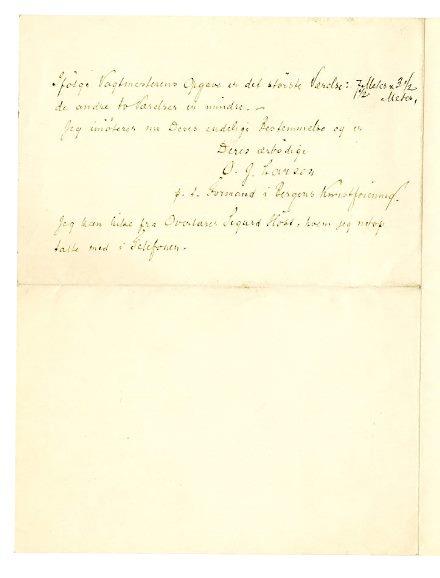 Ifølge Vagtmesterens Opgave er det største Værelse: 7 1/2 Meter x 3 1/2 Meter,
de andre to Værelser er mindre. –
Jeg imøteser nu Deres endelige Bestemmelse og er
Deres ærbødige
O. J. Larsen
p. t. Formand i Bergens Kunstforening.
Jeg kan hilse fra Overlærer Sigurd Høst, hvem jeg netop
talte med i Telefonen. –